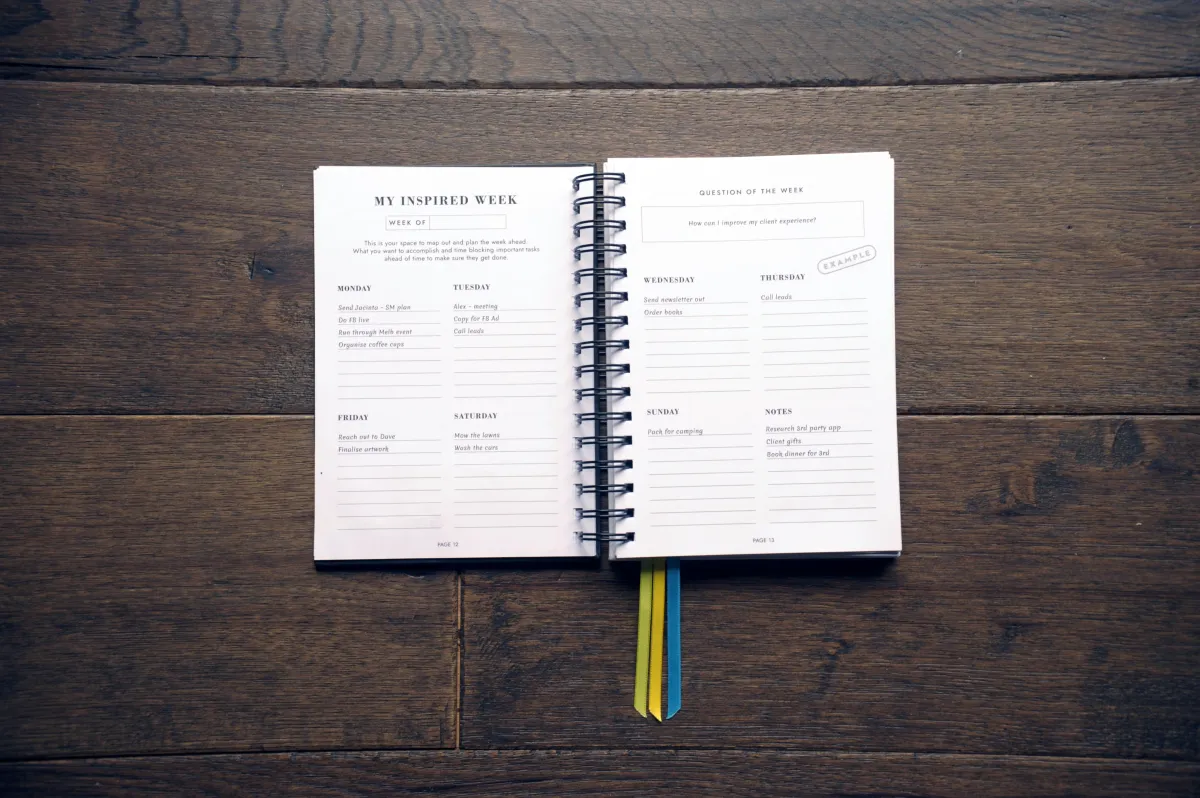 MY INSPIRED WEEK
WEEK OF
This is your space to map out and plan the week ahead.
What you want to accomplish and time blocking important tasks
ahead of time to make sure they get done.
MONDAY
Send Jacinta - SM plan
Do FB live
Run through Melb event
Organise coffee cups
TUESDAY
Alex - meeting
Copy for FB Ad
Call leads
FRIDAY
Reach out to Dave
Finalise artwork
SATURDAY
Mow the lawns
Wash the cars
PAGE 12
QUESTION OF THE WEEK
How can I improve my client experience?
EXAMPLE
WEDNESDAY
Send newsletter out
Order books
THURSDAY
Call leads
SUNDAY
Pack for camping
NOTES
Research 3rd party app
Client gifts
Book dinner for 3rd
PAGE 13